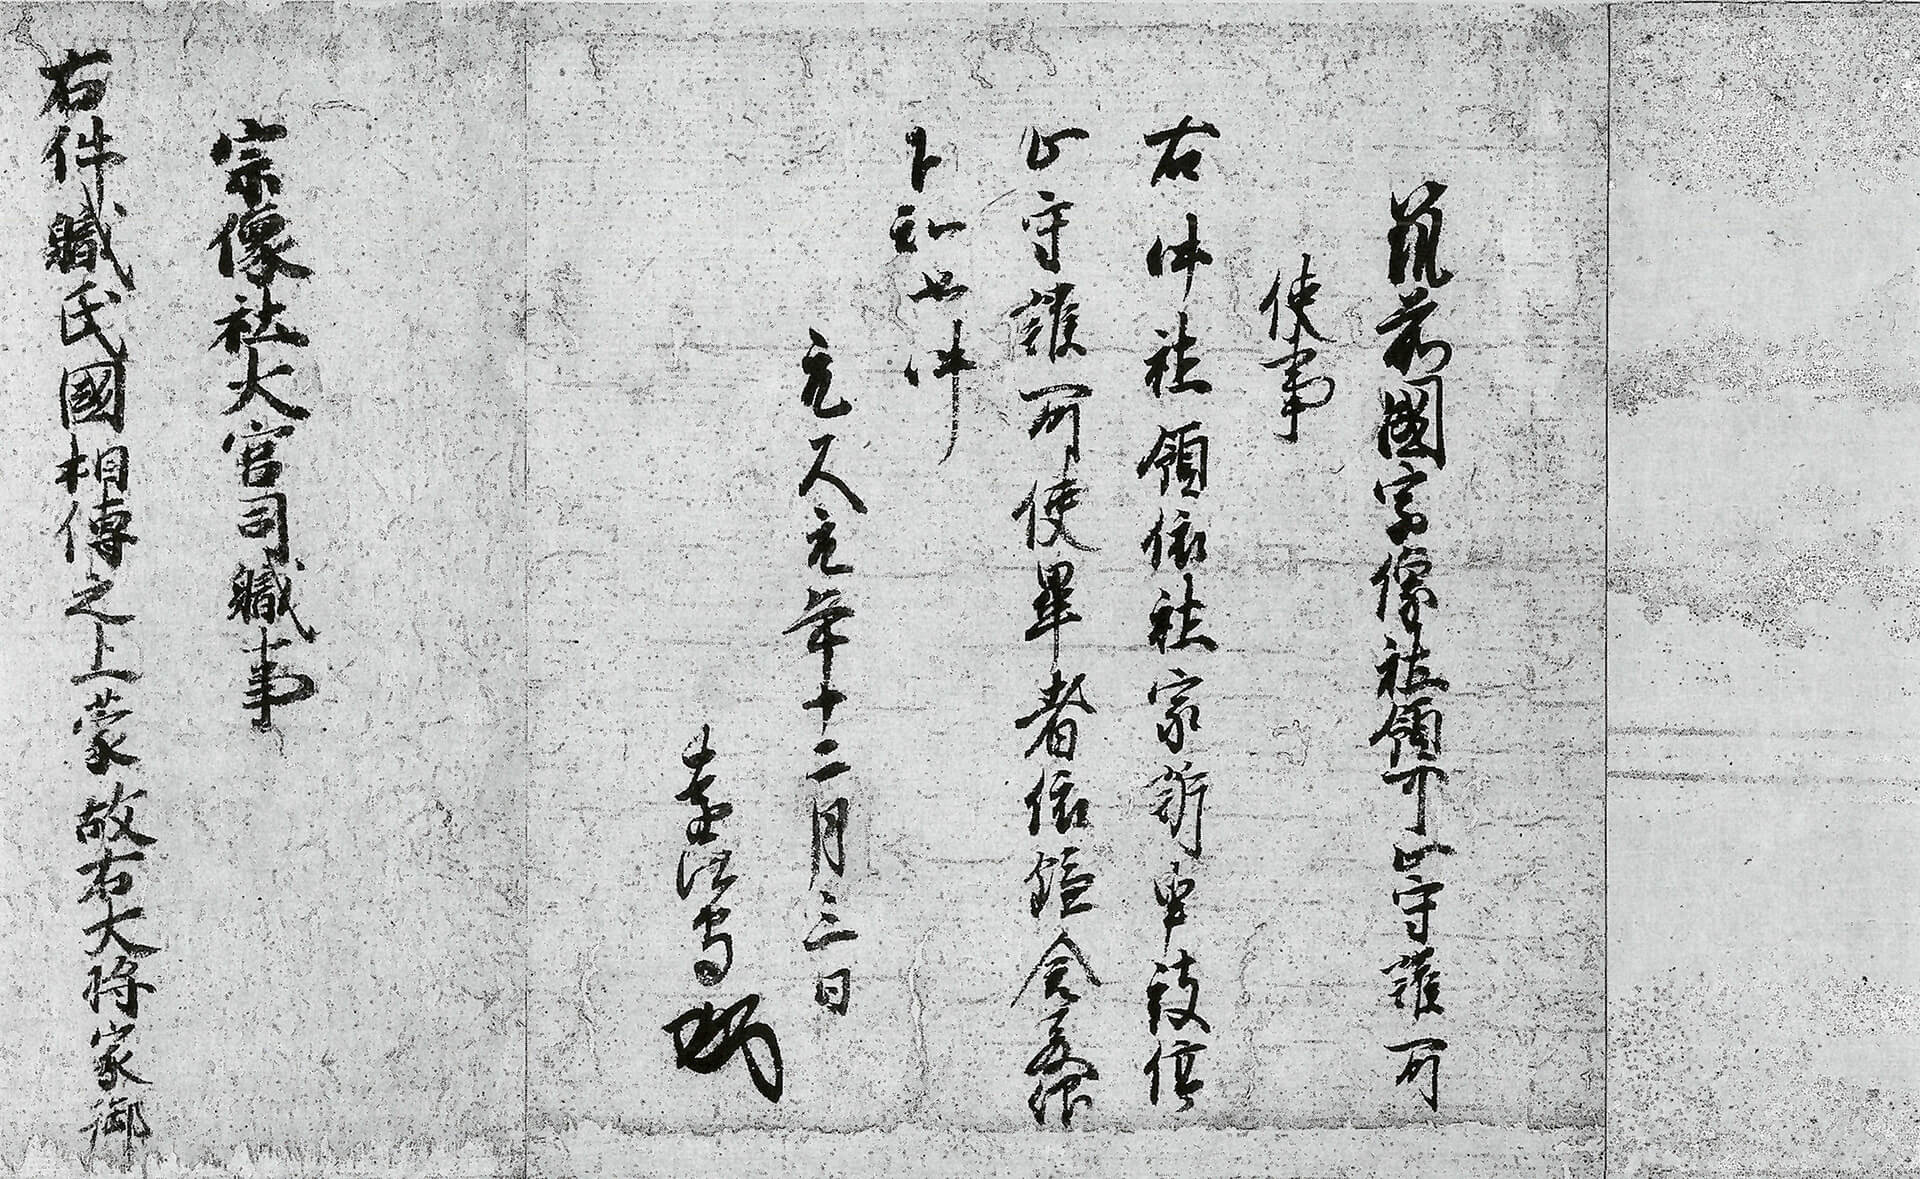 筑前國宗像社領可止守護所
使事
右件社領依社家解申被停
止守護所使畢者依鎌倉殿仰
下知如件
元久元年十二月三日
遠江守
宗像社大宮司職事
右件職氏國相傳之上蒙故右大將家御